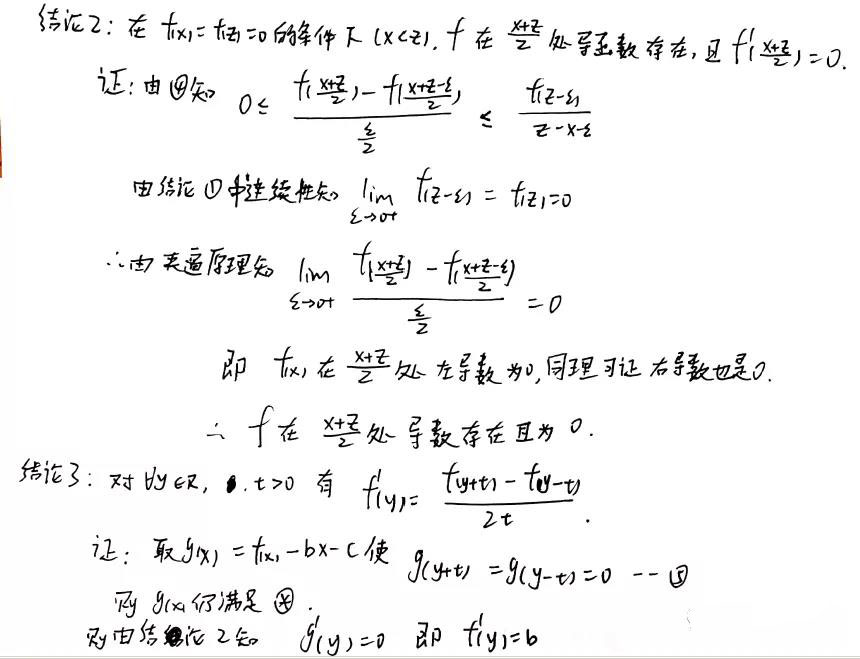 结论2: 在 f(x)=f(z)=0 的条件下 (x<z), f 在 \frac{x+z}{2} 处导函数存在, 且 f'(\frac{x+z}{2})=0.
证: 由④知 0≤ \frac{f(\frac{x+z}{2})-f(\frac{x+z-ε}{2})}{\frac{ε}{2}} ≤ \frac{f(z-ε)}{z-x-ε}
由结论①中连续性知 \lim_{ε→0+} f(z-ε) = f(z)=0
∴由夹逼原理知 \lim_{ε→0+} \frac{f(\frac{x+z}{2})-f(\frac{x+z-ε}{2})}{\frac{ε}{2}} =0
即 f(x) 在 \frac{x+z}{2} 处左导数为0, 同理可证右导数也是0.
∴ f 在 \frac{x+z}{2} 处导数存在且为 0.
结论3: 对 ∀y∈R, t>0 有 f'(y)= \frac{f(y+t)-f(y-t)}{2t}.
证: 取 g(x)=f(x)-bx-c 使 g(y+t)=g(y-t)=0 --⑤
则 g(x) 仍满足 ⊛.
则由结论2知 g'(y)=0 即 f'(y)=b